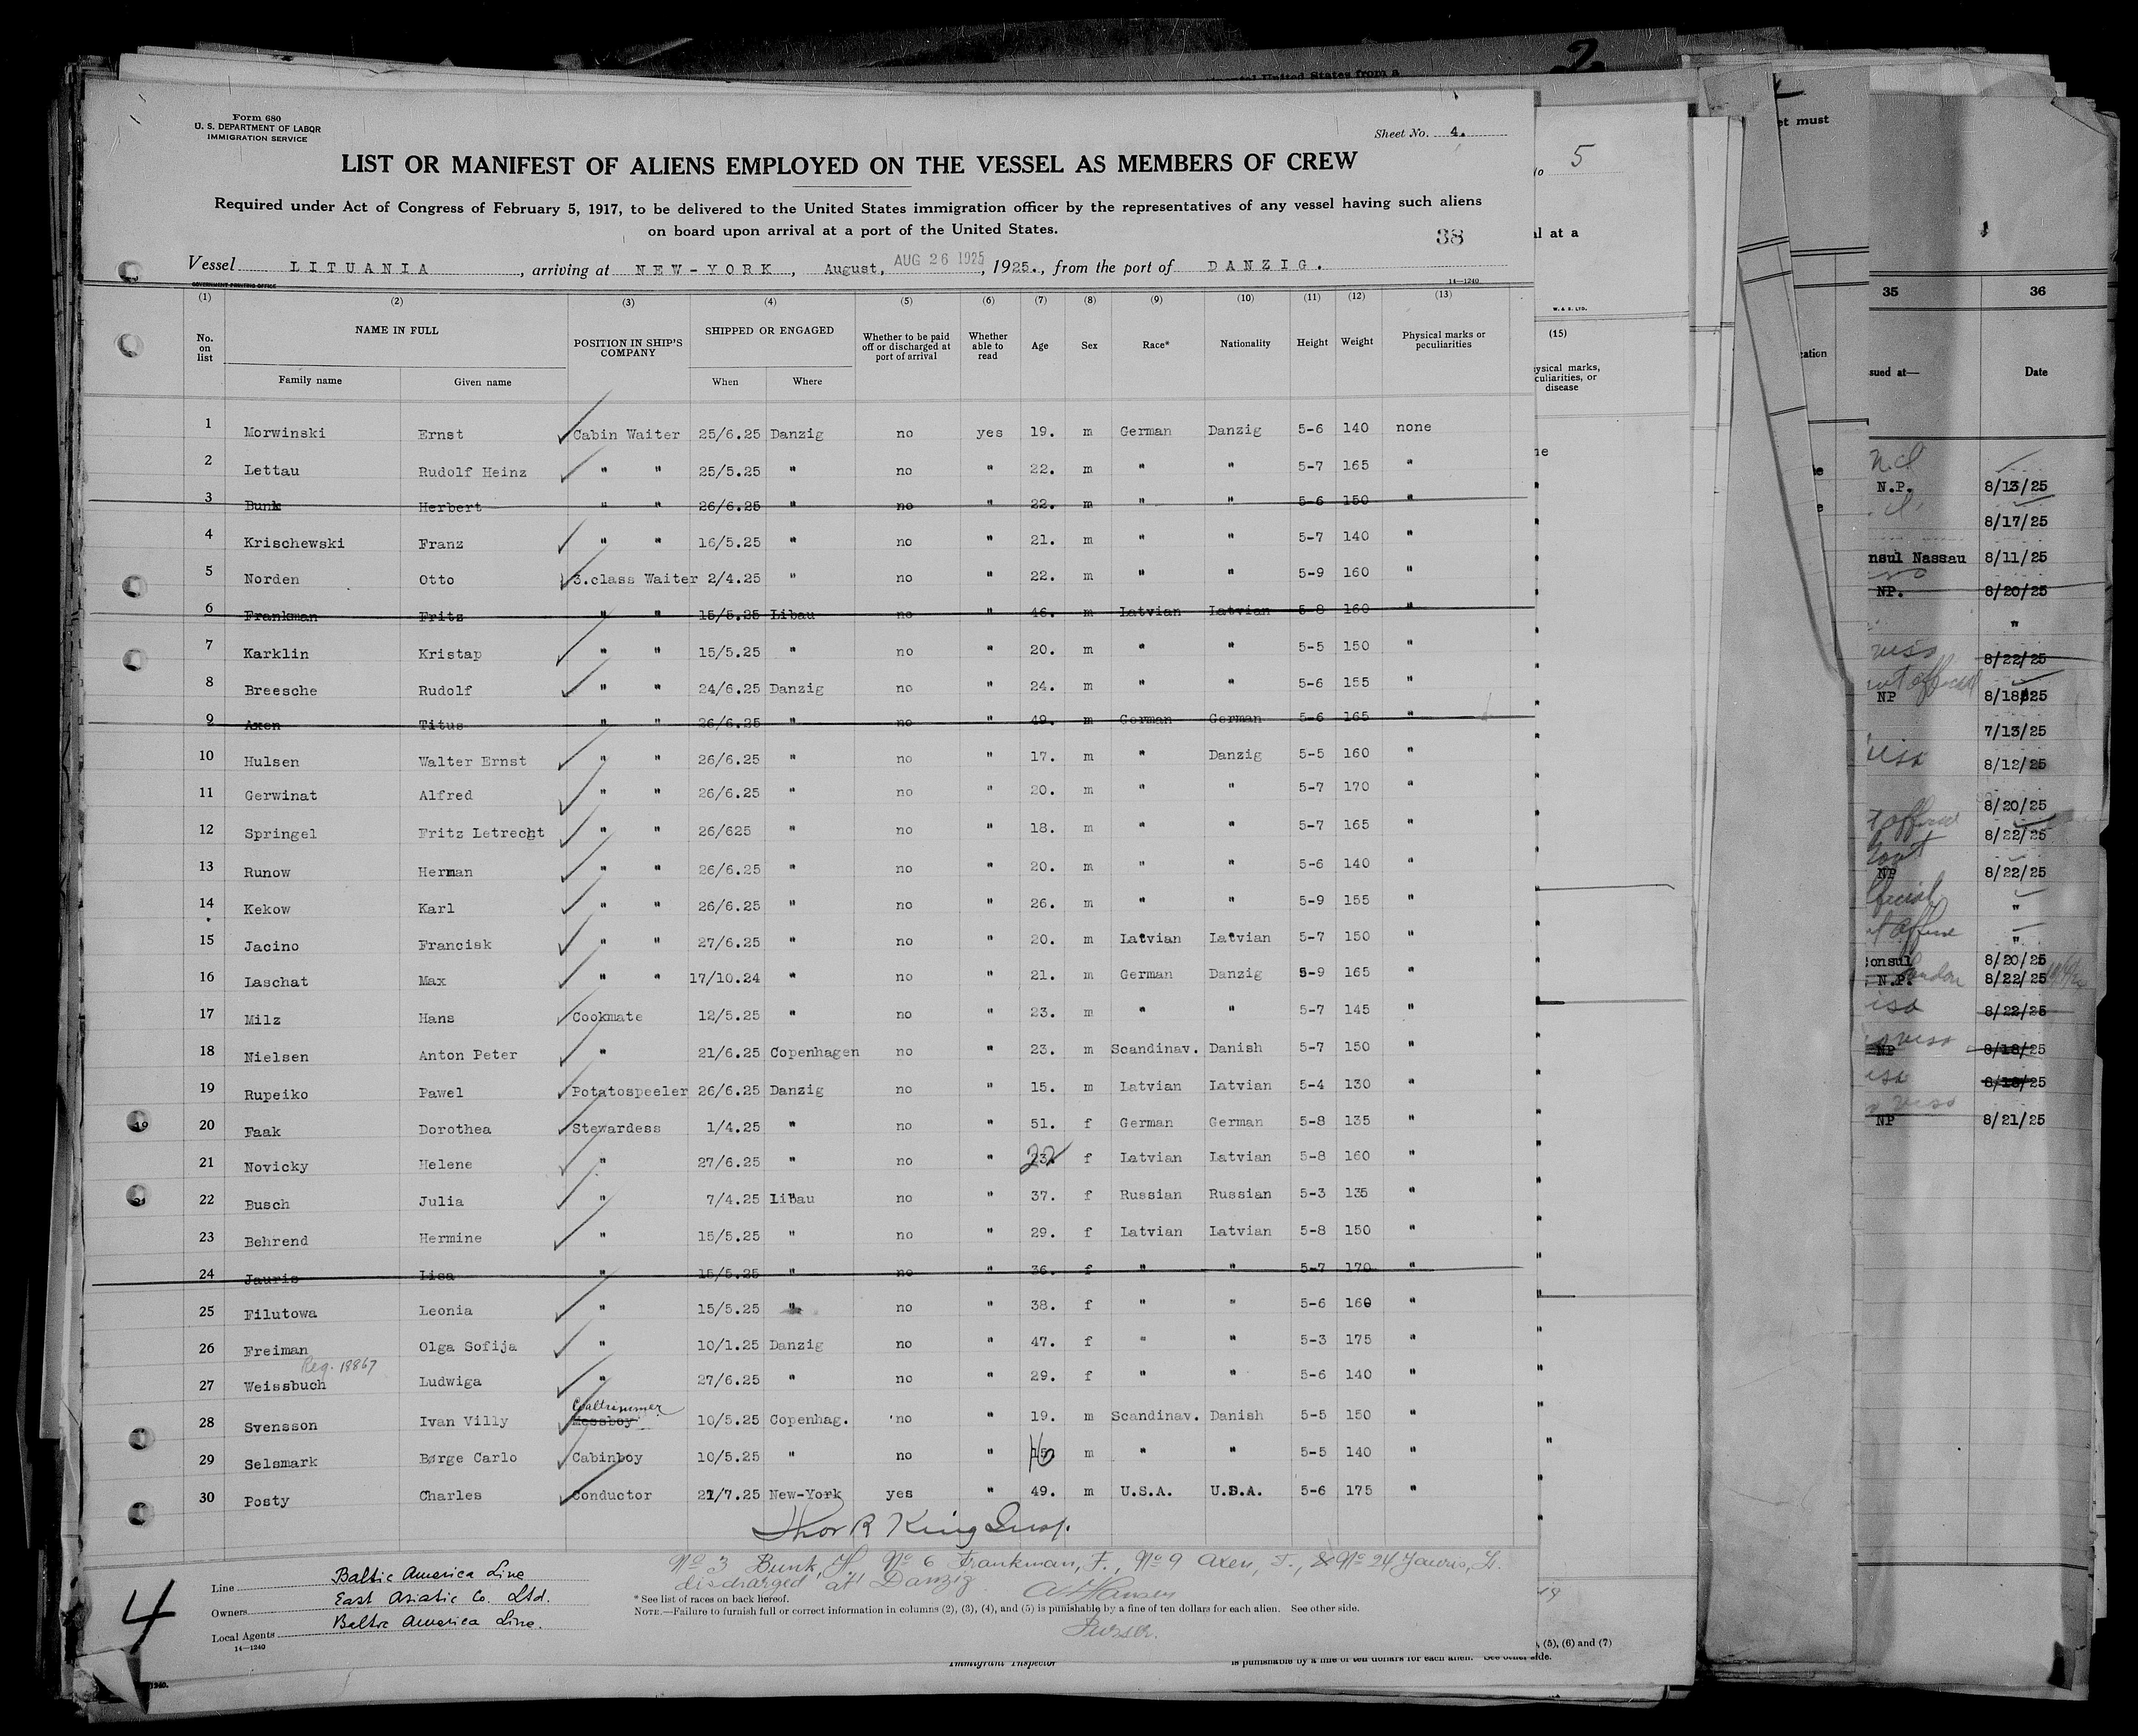 Form 680
U. S. DEPARTMENT OF LABOR
IMMIGRATION SERVICE
Sheet No. 4.
LIST OR MANIFEST OF ALIENS EMPLOYED ON THE VESSEL AS MEMBERS OF CREW
Required under Act of Congress of February 5, 1917, to be delivered to the United States immigration officer by the representatives of any vessel having such aliens
on board upon arrival at a port of the United States.
38
Vessel LITUANIA, arriving at NEW-YORK, August, AUG 26 1925, 1925., from the port of DANZIG.
GOVERNMENT PRINTING OFFICE 14—1240
(1) (2) (3) (4) (5) (6) (7) (8) (9) (10) (11) (12) (13)
No. on list NAME IN FULL POSITION IN SHIP'S COMPANY SHIPPED OR ENGAGED Whether to be paid off or discharged at port of arrival Whether able to read Age Sex Race* Nationality Height Weight Physical marks or peculiarities
Family name Given name When Where
1 Morwinski Ernst Cabin Waiter 25/6.25 Danzig no yes 19. m German Danzig 5-6 140 none
2 Lettau Rudolf Heinz " " 25/5.25 " no " 22. m " " 5-7 165 "
3 Bunk Herbert " " 26/6.25 " no " 22. m " " 5-6 150 "
4 Krischewski Franz " " 16/5.25 " no " 21. m " " 5-7 140 "
5 Norden Otto 3.class Waiter 2/4.25 " no " 22. m " " 5-9 160 "
6 Frankman Fritz " " 15/5.25 Libau no " 46. m Latvian Latvian 5-8 160 "
7 Karklin Kristap " " 15/5.25 " no " 20. m " " 5-5 150 "
8 Breesche Rudolf " " 24/6.25 Danzig no " 24. m " " 5-6 155 "
9 Axen Titus " " 26/6.25 " no " 49. m German German 5-6 165 "
10 Hulsen Walter Ernst " " 26/6.25 " no " 17. m " Danzig 5-5 160 "
11 Gerwinat Alfred " " 26/6.25 " no " 20. m " " 5-7 170 "
12 Springel Fritz Letrecht " " 26/625 " no " 18. m " " 5-7 165 "
13 Runow Herman " " 26/6.25 " no " 20. m " " 5-6 140 "
14 Kekow Karl " " 26/6.25 " no " 26. m " " 5-9 155 "
15 Jacino Francisk " " 27/6.25 " no " 20. m Latvian Latvian 5-7 150 "
16 Laschat Max " " 17/10.24 " no " 21. m German Danzig 5-9 165 "
17 Milz Hans Cookmate 12/5.25 " no " 23. m " " 5-7 145 "
18 Nielsen Anton Peter " 21/6.25 Copenhagen no " 23. m Scandinav. Danish 5-7 150 "
19 Rupeiko Pawel Potatospeeler 26/6.25 Danzig no " 15. m Latvian Latvian 5-4 130 "
20 Faak Dorothea Stewardess 1/4.25 " no " 51. f German German 5-8 135 "
21 Novicky Helene " 27/6.25 " no " 22 f Latvian Latvian 5-8 160 "
22 Busch Julia " 7/4.25 Libau no " 37. f Russian Russian 5-3 135 "
23 Behrend Hermine " 15/5.25 " no " 29. f Latvian Latvian 5-8 150 "
24 Jauris Lisa " 15/5.25 " no " 36. f " " 5-7 170 "
25 Filutowa Leonia " 15/5.25 " no " 38. f " " 5-6 160 "
26 Freiman Olga Sofija " 10/1.25 Danzig no " 47. f " " 5-3 175 "
Reg. 18867
27 Weissbuch Ludwiga " 27/6.25 " no " 29. f " " 5-6 140 "
Coaltrimmer
28 Svensson Ivan Villy Messboy 10/5.25 Copenhag. no " 19. m Scandinav. Danish 5-5 150 "
29 Selsmark Børge Carlo Cabinboy 10/5.25 " no " 16 m " " 5-5 140 "
30 Posty Charles Conductor 21/7.25 New-York yes " 49. m U.S.A. U.S.A. 5-6 175 "
Thor R King Insp.
No 3 Bunk, H., No 6 Frankman, F., No 9 Axen, T., & No 24 Jauris, L.
discharged at Danzig
A Hansen
Purser.
Line Baltic America Line
Owners East Asiatic Co. Ltd.
Local Agents Baltic America Line.
14—1240
4
* See list of races on back hereof.
NOTE.—Failure to furnish full or correct information in columns (2), (3), (4), and (5) is punishable by a fine of ten dollars for each alien. See other side.
Immigrant Inspector
is punishable by a fine of ten dollars for each alien. See other side.
, (5), (6) and (7)
2
United States from a
5
al at a
W. & S. LTD.
(15)
ysical marks,
culiarities, or
disease
et must
35 36
sued at— Date
N.P. 8/13/25
8/17/25
nsul Nassau 8/11/25
NP. 8/20/25
"
8/22/25
NP 8/18/25
7/13/25
visa 8/12/25
8/20/25
8/22/25
NP 8/22/25
"
"
onsul 8/20/25
N.P. London 8/22/25
8/22/25
NP 8/18/25
8/18/25
NP 8/21/25